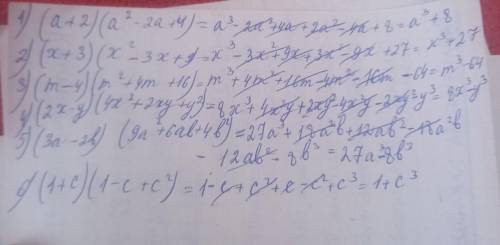 1) (a+2)(a²-2a+4)=a³-2a²+4a+2a²-4a+8=a³+8
2) (x+3)(x²-3x+9)=x³-3x²+9x+3x²-9x+27=x³+27
3) (m-4)(m²+4m+16)=m³+4m²+16m-4m²-16m-64=m³-64
4) (2x-y)(4x²+2xy+y²)=8x³+4x²y+2xy²-4x²y-2xy²-y³=8x³-y³
5) (3a-2b) (9a+6ab+4b²)=27a³+18a²b+12ab²-18a²b
-12ab²-8b³=27a³-8b³
(1+c)(1-c+c²)=1-c+c²+c-c²+c³=1+c³